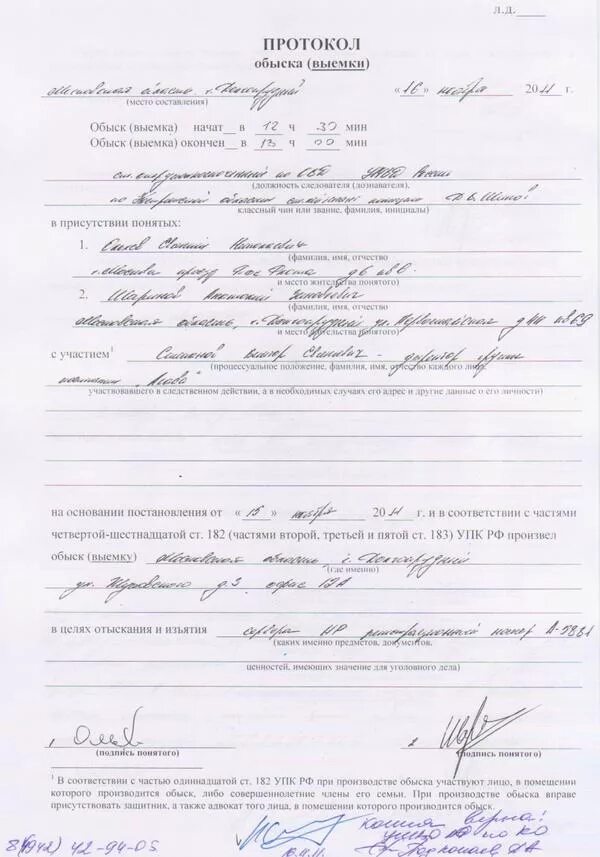 Л.Д.____
ПРОТОКОЛ
обыска (выемки)
Московская область г. Долгопрудный «16» ноября 2011 г.
(место составления)
Обыск (выемка) начат в 12 ч 30 мин
Обыск (выемка) окончен в 13 ч 00 мин
ст. оперуполномоченный по УМВД России
(должность следователя (дознавателя),
по области
классный чин или звание, фамилия, инициалы)
в присутствии понятых:
1. Николаевич
(фамилия, имя, отчество
г. Москва проезд д 6
и место жительства понятого)
2. Шаринов Анатолий
(фамилия, имя, отчество
Московская область, г. Долгопрудный ул. Первомайская кв 69
и место жительства понятого)
с участием¹ Виктор Иванович - директор группы
(процессуальное положение, фамилия, имя, отчество каждого лица,
компании
участвовавшего в следственном действии, а в необходимых случаях его адрес и другие данные о его личности)
на основании постановления от «15» ноября 2011 г. и в соответствии с частями
четвертой-шестнадцатой ст. 182 (частями второй, третьей и пятой ст. 183) УПК РФ произвел
обыск (выемку) Московская область г. Долгопрудный
(где именно)
ул. Жуковского д.3 офис 12А
в целях отыскания и изъятия сервера HP регистрационный номер А-5881
(каких именно предметов, документов,
ценностей, имеющих значение для уголовного дела)
1
(подпись понятого)
2
(подпись понятого)
¹ В соответствии с частью одиннадцатой ст. 182 УПК РФ при производстве обыска участвуют лицо, в помещении
которого производится обыск, либо совершеннолетние члены его семьи. При производстве обыска вправе
присутствовать защитник, а также адвокат того лица, в помещении которого производится обыск.
копия верна!
8(4942) 42-94-05